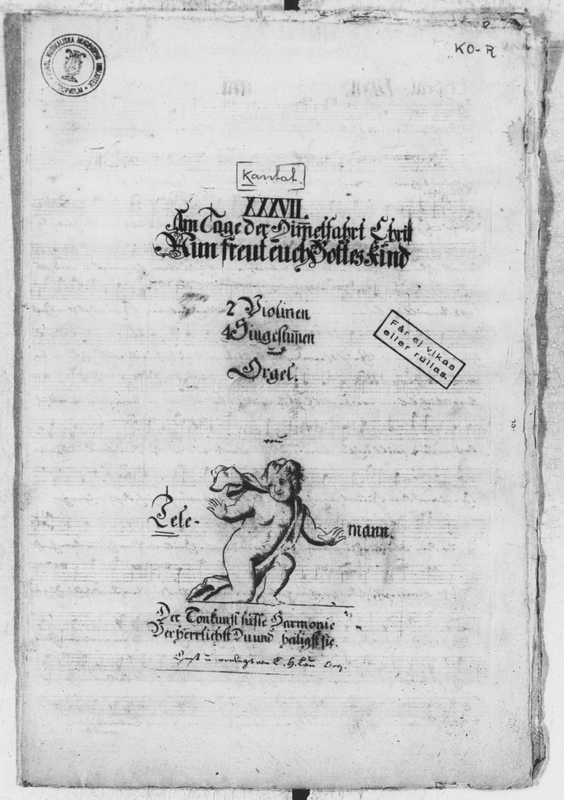 KO-R
Kantat.
XXXVII.
Am Tage der Himelfahrt Christ
Nun freut euch Gottes Kind
2 Violinen
4 Singestimen
und
Orgel.
von
Tele-
mann.
Får ej vikas
eller rullas.
Der Tonkunst süsse Harmonie
Verherrlichst Du und heiligst sie.